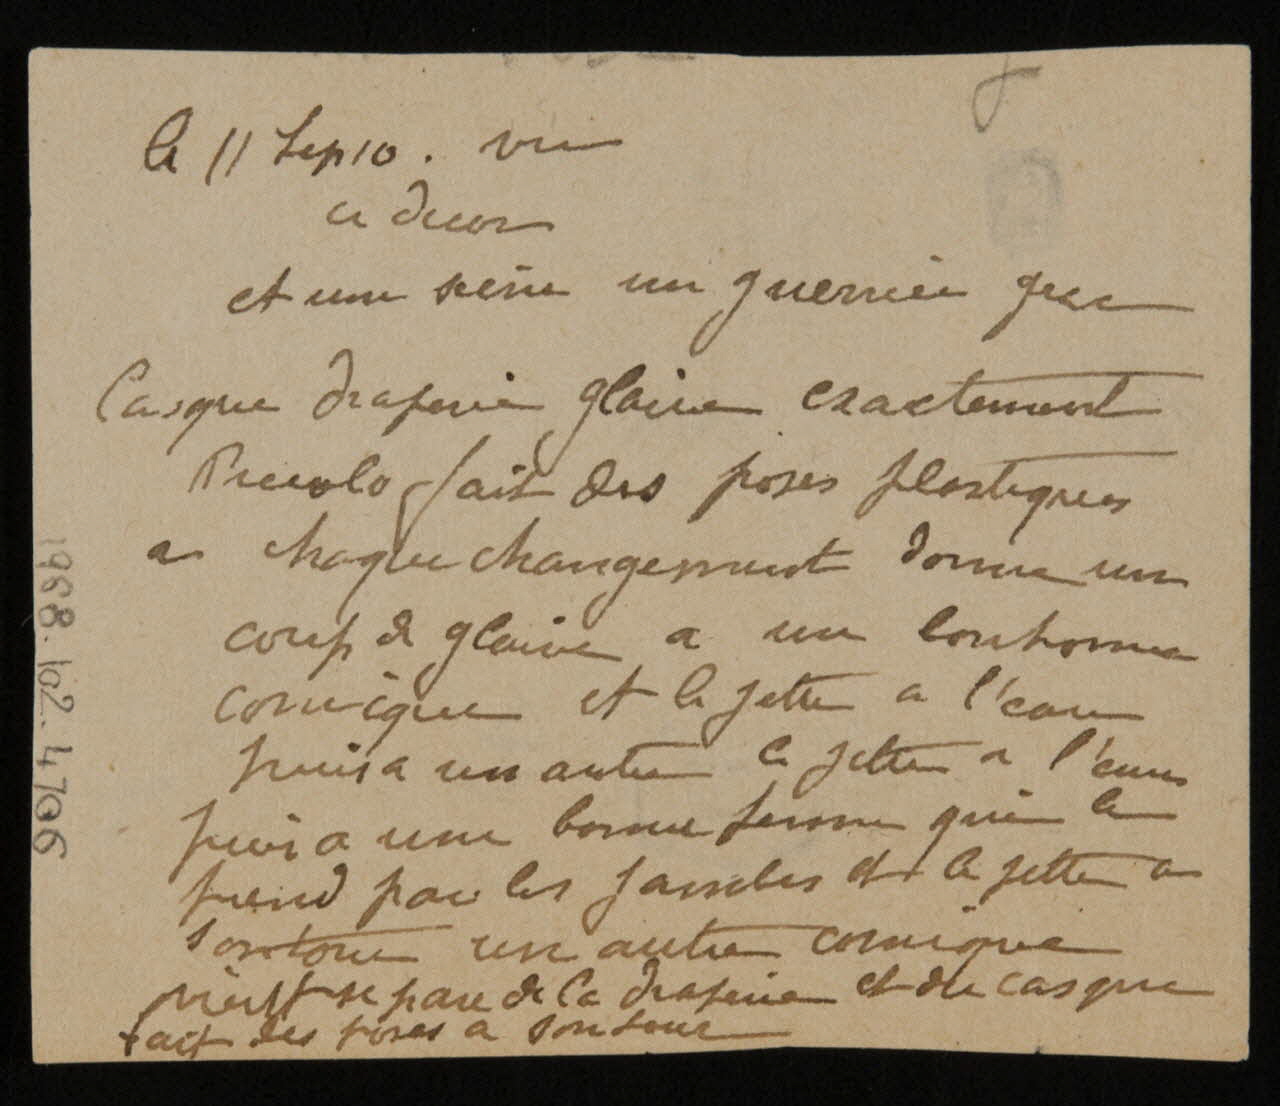 le 11 Sep 10. vu
ce decor
et une scène un guerrier grec
Casque draperie glaive exactement
Piccolo fait des poses plastiques
a chaque changement donne un
coup de glaive a un bonhome
comique et le jette a l'eau
puis a un autre le jette a l'eau
puis a une bonne femme qui le
prend par les jambes et le jette a
son tour un autre comique
vient se pare de la draperie et du casque
fait des poses a son tour
1988.102.4706